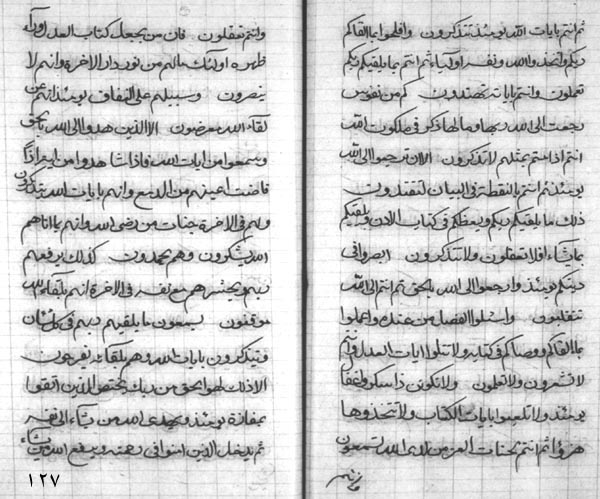 ثم انتم بايات الله يومئذ تتذكرون وافلحوا بما القاكم
ربكم واتخذوا الله ونفسه اوليآء ثم انتم بما يلقيكم ربكم
تعملون وانتم بايات تهتدون كم من نفوس
رجعت الى الله ربها ومالها ذكر فى ملكوت الله
انتم اذا سمعتم بمثلهم لا تتذكرون الا ان ترجعوا الى الله
يومئذ ثم انتم بالنقطة فى البيان لتفتدون
ذلك ما يلقيكم ربكم ويعظكم فى كتاب الاذن ويلقيكم
بما شآء افلا تعقلون ولا تتذكرون ابصروا فى
دينكم يومئذ وارجعوا الى الله بالحق ثم انتم الى الله
تنقلبون واسئلوا الفضل من عنده واعملوا
بما القاكم ووصاكم فى كتابه ولا تتلوا ايات العدل وانتم
لا تشعرون ولا تعلمون ولا تكونن
يومئذ ولا تلعبوا بايات الكتاب ولا تتخذوها
هزوا ثم انتم بجنات العز من لدى الله تسمعون
وانتم تعقلون فان من يجعل كتاب العدل ورآء
ظهره اولئك مالهم من نور دار الاخرة وانهم لا
ينصرون وسبيلهم على النفاق يومئذ انهم عن
لقاء الله معرضون الا الذين هدوا الى الله بالحق
وسمعوا من ايات الله فاذا شاهدوا من
فاضت اعينهم من الدمع وانهم بايات الله يتذكرون
ولهم فى الاخرة جنات من رضى الله وانهم بما اتاهم
الله يشكرون وهم يحمدون كذلك يرفعهم
ربهم ويحشرهم مع نفسه فى الاخرة انهم بلقآء الله
موقنون يسمعون ما يلقيهم ربهم فى كل شان
ويتذكرون بايات الله وهم بلقاء ربه يفرحون
الا ذلك لهو الحق من ربك يختص الذين اتقوا
بمفازة يومئذ ويهدى الله من يشآء الى نفسه
ثم يدخل الذين امنوا فى رحمته ويرفع الله من يشآء
١٢٧